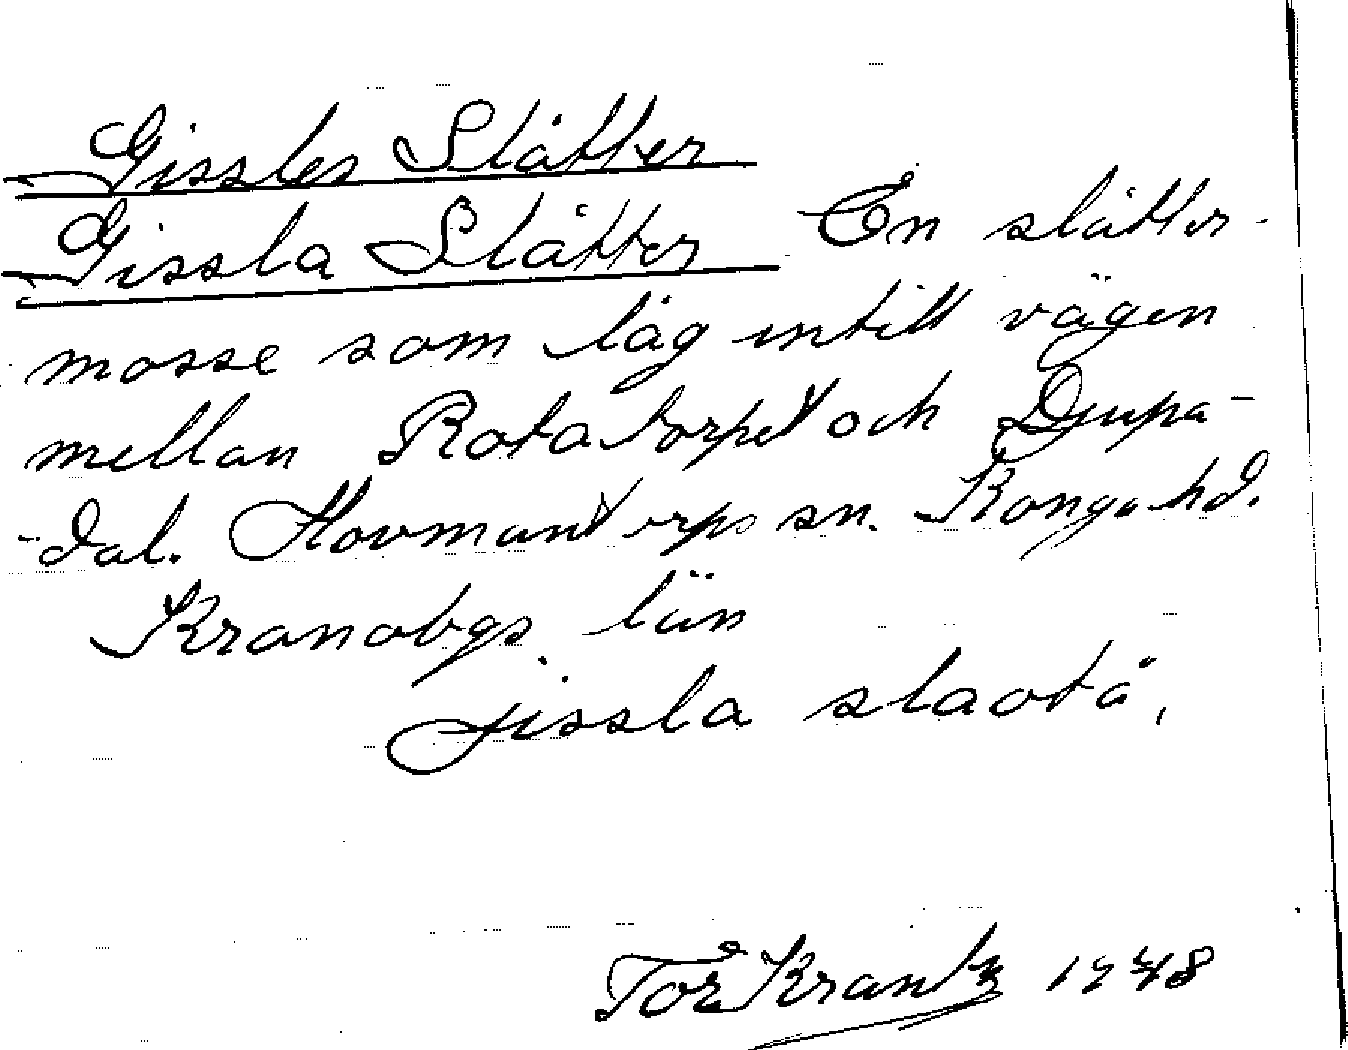 Gissles Slåtter
Gissla Slåtter En slåtter-
mosse som låg intill vägen
mellan Rotatorpet och Djupa-
-dal. Hovmantorps sn. Konga hd.
Kronobgs län
jissla slaotä,
Tor Krantz 1948